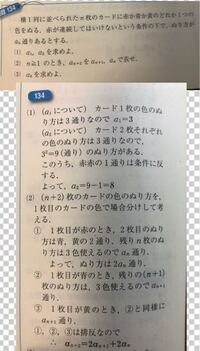 134
横1列に並べられたn枚のカードに赤か青か黄のどれか1つの
色をぬる。赤が連続してはいけないという条件の下で、ぬり方が
aₙ通りあるとする。
(1) a₁, a₂を求めよ.
(2) n≧1のとき, aₙ₊₂をaₙ₊₁, aₙで表せ.
(3) aₙを求めよ.
134
(1) (a₁について) カード1枚の色のぬ
り方は3通りなので a₁=3
(a₂について) カード2枚それぞれ
の色のぬり方は3通りなので,
3²=9 (通り)のぬり方がある.
このうち, 赤赤の1通りは条件に反
する.
よって, a₂=9-1=8
(2) (n+2)枚のカードの色のぬり方を,
1枚目のカードの色で場合分けして考
える.
① 1枚目が赤のとき, 2枚目のぬり
方は青, 黄の2通り, 残りn枚のぬ
り方は3色使えるのでaₙ通り.
よって, ぬり方は2aₙ通り.
② 1枚目が青のとき, 残りの(n+1)
枚のぬり方は, 3色使えるのでaₙ₊₁
通り.
③ 1枚目が黄のとき, ②と同様に
aₙ₊₁通り.
①, ②, ③は排反なので
∴ aₙ₊₂=2aₙ₊₁+2aₙ